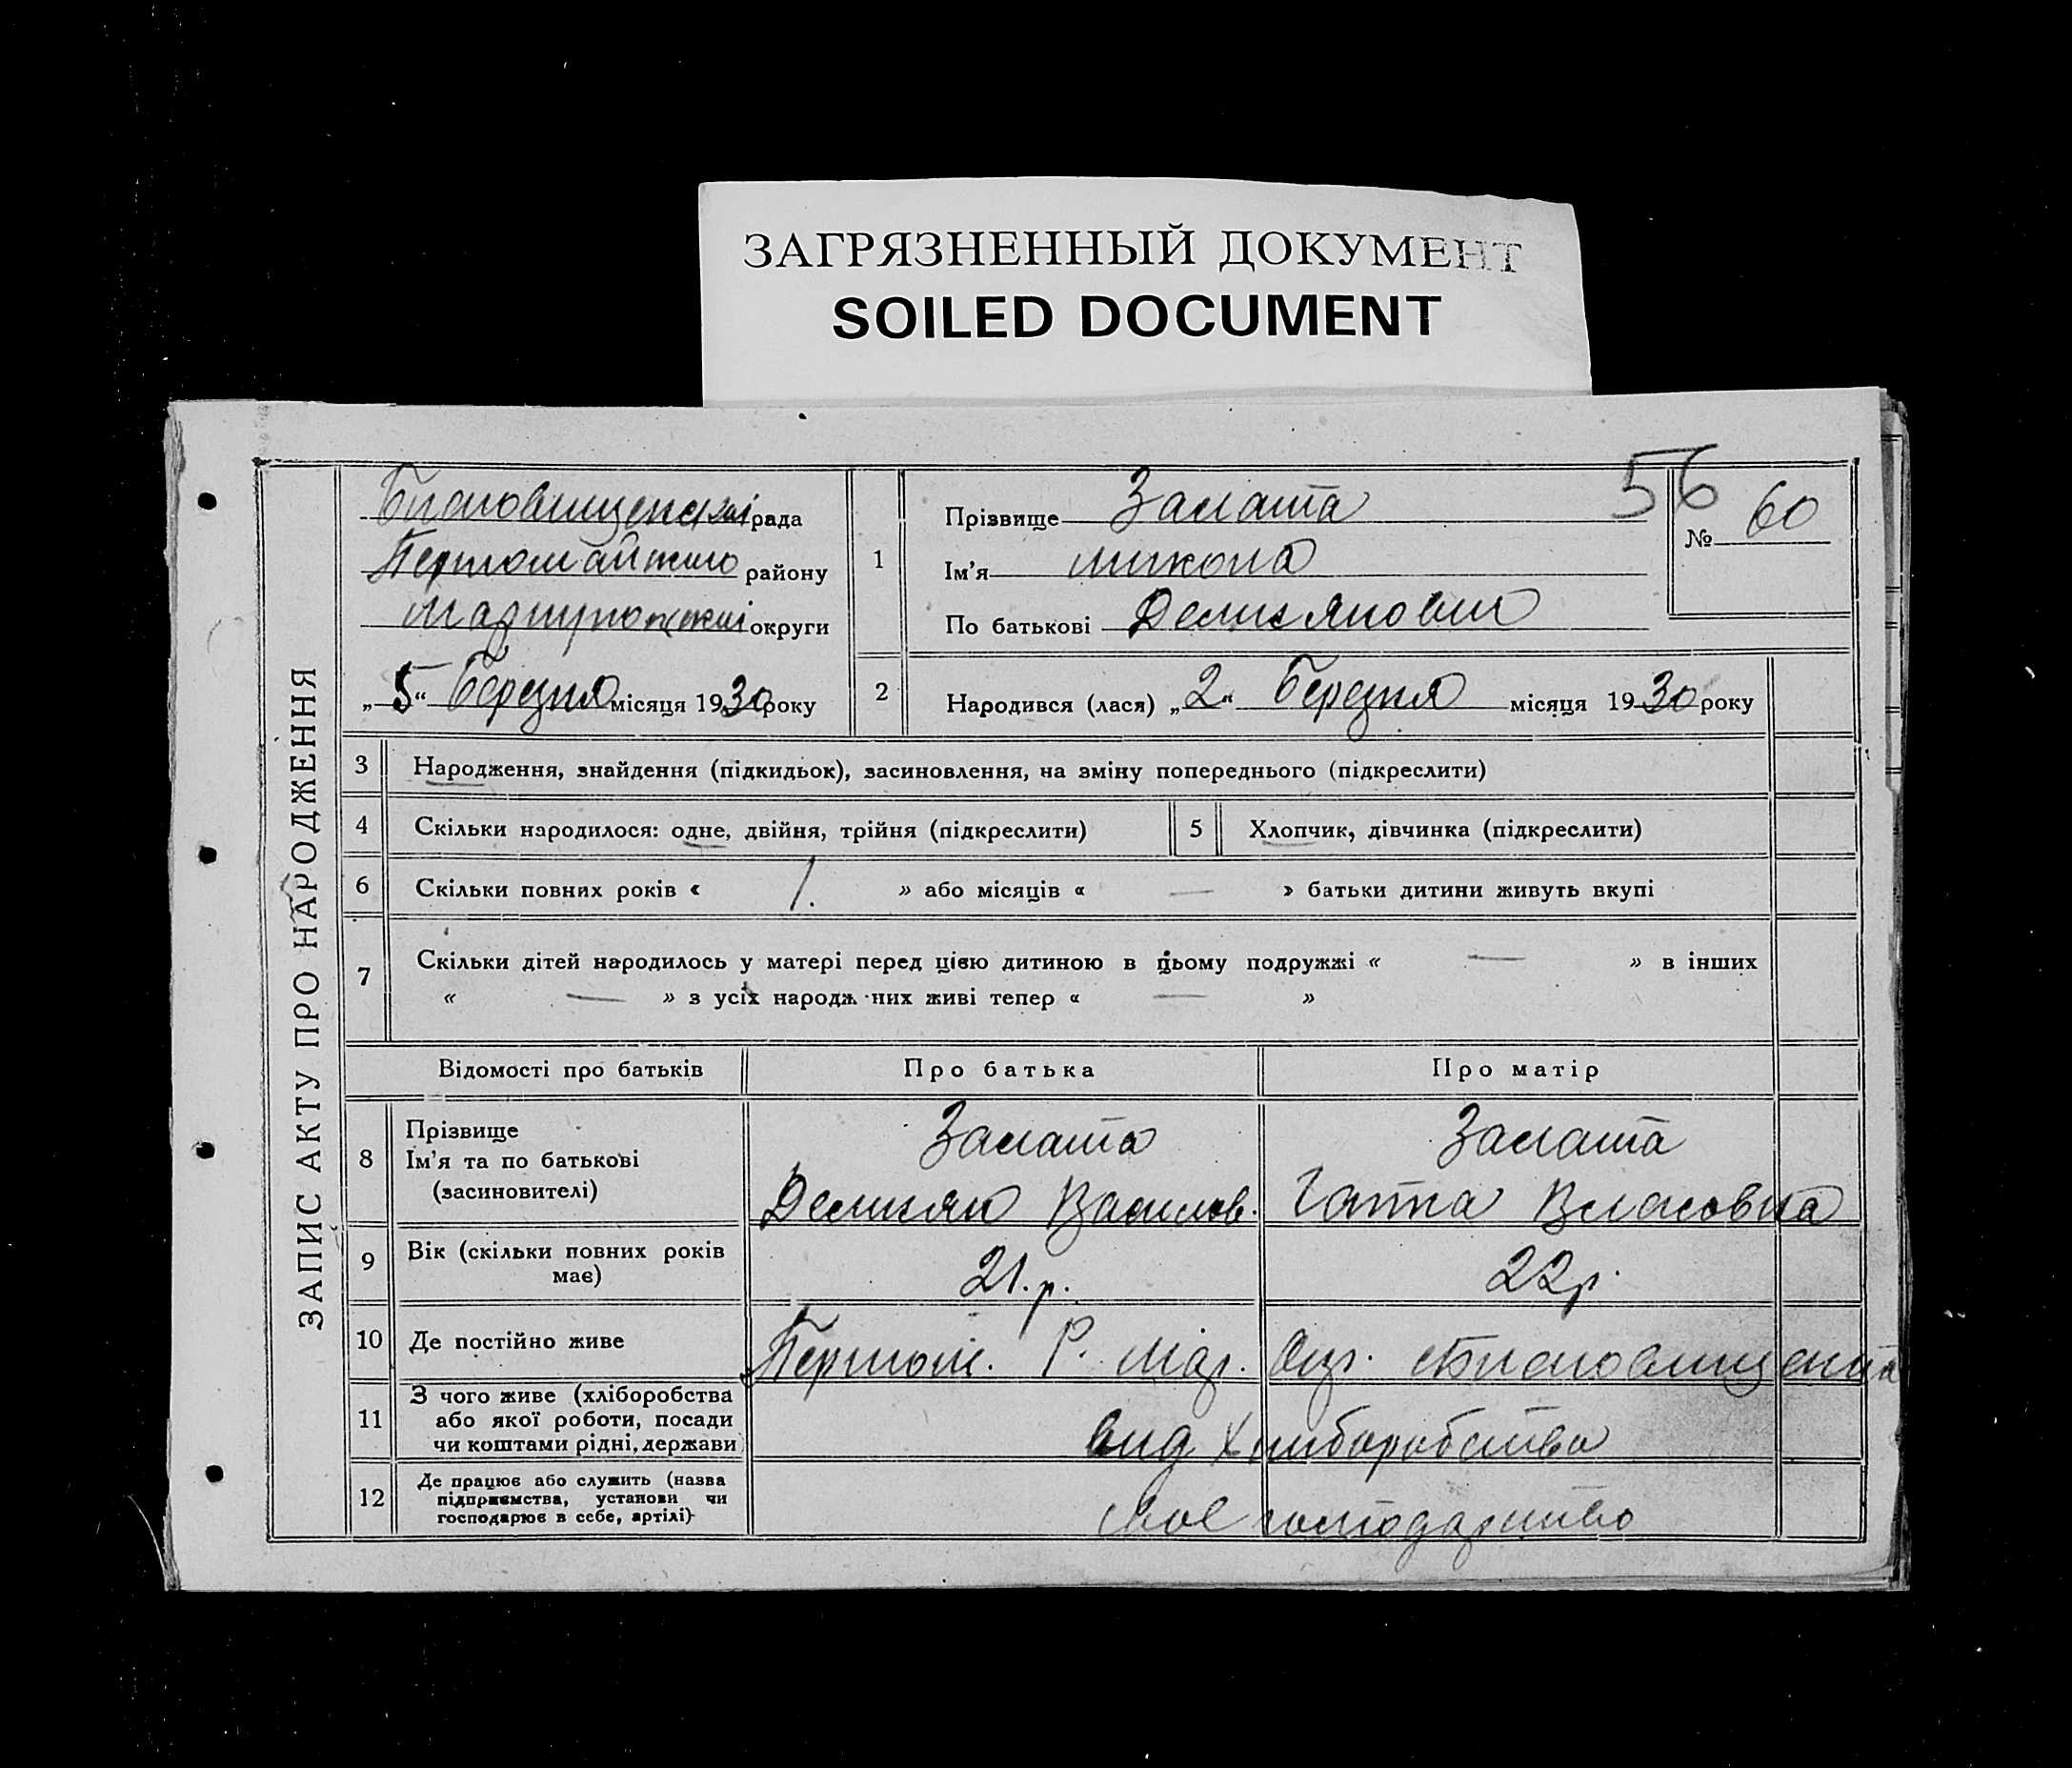 ЗАГРЯЗНЕННЫЙ ДОКУМЕНТ
SOILED DOCUMENT
56
ЗАПИС АКТУ ПРО НАРОДЖЕННЯ
рада
району
округи
„5“ Березня місяця 1930 року
1
Прізвище
Ім’я Микола
По батькові Демянович
№ 60
2
Народився (лася) „2“ Березня місяця 1930 року
3 Народження, знайдення (підкидьок), засиновлення, на зміну попереднього (підкреслити)
4 Скільки народилося: одне, двійня, трійня (підкреслити)
5 Хлопчик, дівчинка (підкреслити)
6 Скільки повних років « 1. » або місяців « — » батьки дитини живуть вкупі
7 Скільки дітей народилось у матері перед цією дитиною в цьому подружжі « — » в інших
« — » з усіх народж них живі тепер « — »
Відомості про батьків
Про батька
Про матір
8
Прізвище
Ім’я та по батькові
(засиновителі)
Василов.
Власовна
9
Вік (скільки повних років
має)
21.р.
22р.
10 Де постійно живе
11
З чого живе (хліборобства
або якої роботи, посади
чи коштами рідні, держави
вид Хлиборобства
12
Де працює або служить (назва
підприємства, установи чи
господарює в себе, артілі)
своє господарство